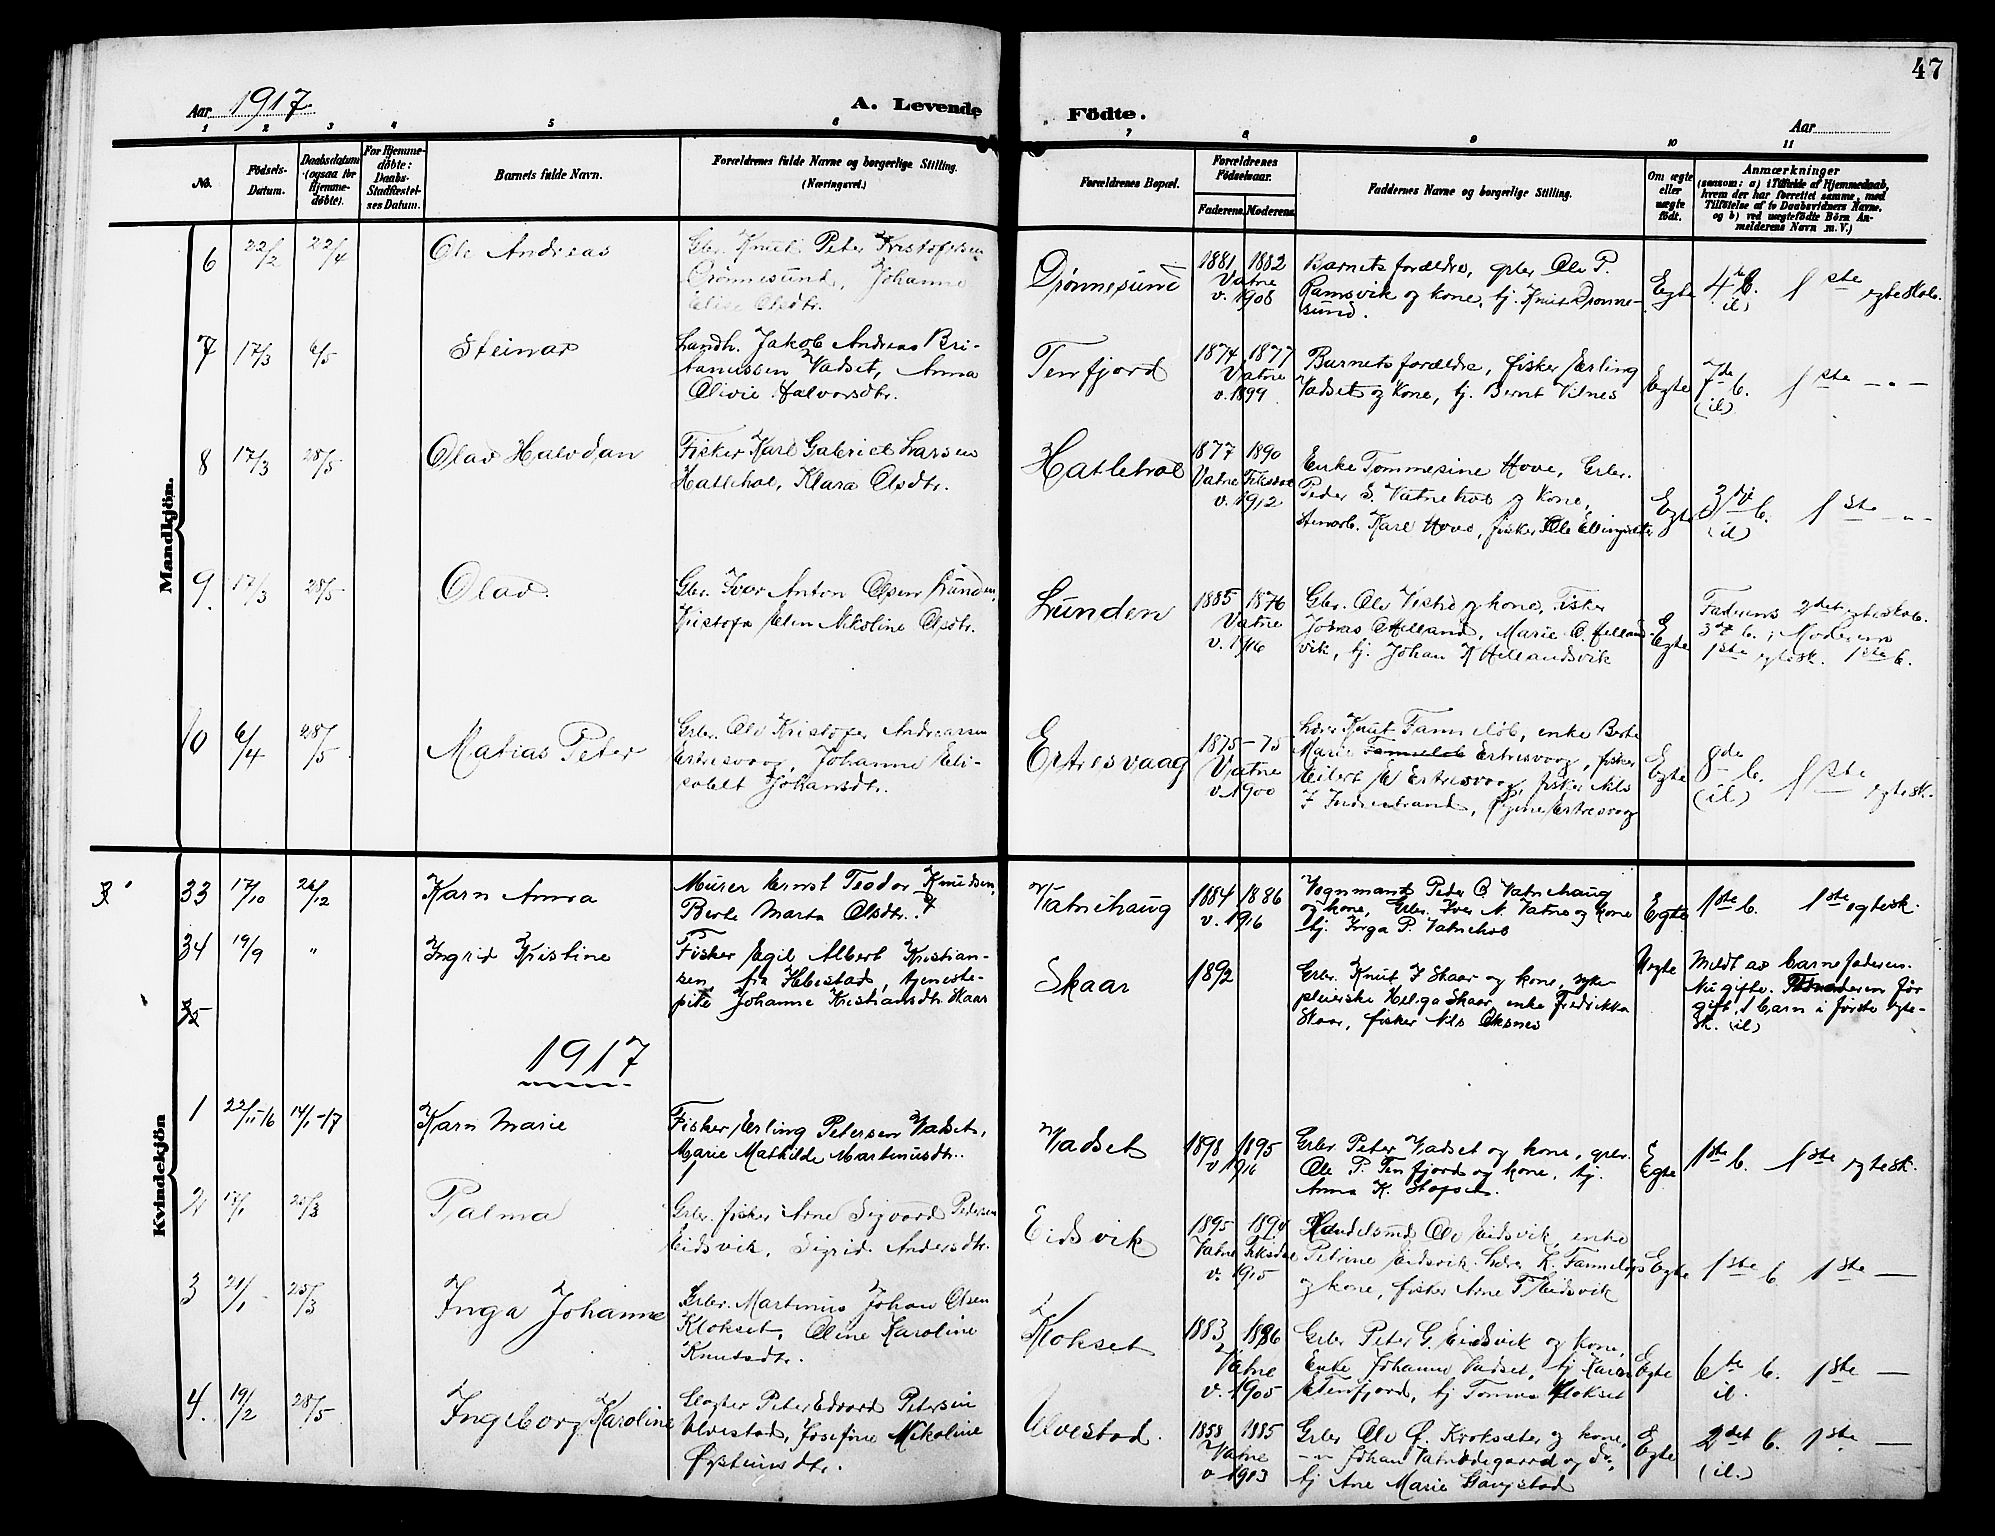 47
Aar 1917. A. Levende Födte. Aar
1 2 3 4 5 6 7 8 9 10 11
No. Födsels-Datum. Daabsdatum (ogsaa for Hjemme-döbte). For Hjemme-döbte: Daabs-Stadfæstel-ses Datum. Barnets fulde Navn. Forældrenes fulde Navne og borgerlige Stilling. (Næringsvei.) Forældrenes Bopæl. Forældrenes Födselsaar. Faderens. Moderens. Faddernes Navne og borgerlige Stilling. Om ægte eller uægte födt. Anmærkninger (saasom: a) i Tilfælde af Hjemmedaab, hvem der har forrettet samme, med Tilföielse af to Daabsvidners Navne, og b) ved uægtefödte Börn An-melderens Navn m. V.)
Mandkjön.
6 22/2 22/4 Ole Andreas Gbr. Knut Peter Kristofersen
Drønnesund, Johanne
Elise Olsdtr.
Drønnesund 1881 1882
Vatne
v. 1908
Barnets forældre, gbr. Ole P.
Ramsvik og kone, tj. Knut Drønne-
sund.
Egte 4de b. 1ste egteskab.
(il)
7 17/3 6/5 Steinar Landh. Jakob Andreas Bri-
tanussen Vadset, Anna
Olivie Halvorsdtr.
Tenfjord 1874 1877
Vatne
v. 1899
Barnets forældre, fisker Erling
Vadset og kone, tj. Bernt Vilnes
Egte 7de b. 1ste — " —
(il)
8 17/3 28/5 Olav Halvdan Fisker Karl Gabriel Larsen
Hatlehol, Klara Olsdtr.
Hatlehol 1877 1890
Vatne Fiksdal
v. 1912
Enke Tommesine Hove, Grbr.
Peder S. Vatnehol og kone,
Stenarb. Karl Hove, fisker Ole
Egte 3die b. 1ste — " —
(il)
9. 17/3 28/5 Olav Gbr. Ivar Anton Olsen Lunden,
Kristofa Elen Nikoline Olsdtr.
Lunden 1885 1876
Vatne
v. 1916
Gbr. Ole Vistre og kone, Fisker
Jonas Helland, Marie O. Helland-
vik, tj. Johan K Hellandsvik
Egte Faderens 2det egteskab.
3dt b., Moderens
1ste egtesk. 1ste b.
10 6/4 28/5 Matias Peter Grbr. Ole Kristofer Andreassen
Ertresvaag, Johanne Eli-
sabet Johansdtr.
Ertresvaag 1875 - 75
Vatne
v. 1900
Lærer Knut Fanneløb, enke Berte
Marie Fanneløb Ertresvaag, fisker
Eilert E Ertresvaag, fisker Nils
J Indrestrand, Ertresvaag
Egte 8de b. 1ste egtesk.
(il)
Kvindekjön
33 17/10 26/12 Karn Anna Murer Ernst Teodor Knudsen,
Berte Marta Olsdtr.
Vatnehaug 1884 1886
v. 1916
Vognmand Peder B Vatnehaug
og kone, Grbr. Iver N. Vatne og kone
tj. Inga P. Vatnehol
Egte 1ste b. 1ste egtesk.
34 19/9 " Ingrid Kristine Fisker Egil Albert Kristian-
sen, fra Hebestad, tjeneste-
pike Johanne Kristiansdtr. Skaar
Skaar 1892
Grbr. Knut J Skaar og kone, syke-
pleierske Helga Skaar, enke Fredrikka
Skaar, fisker Nils Oksnes
Uegte Meldt av barnefaderen.
Nu gifte. Moderen før
gift, 1 barn i første egte-
sk. (il)
35
1917
1 22/11-16 14/1-17 Karn Marie Fisker Erling Petersen Vadset,
Marie Mathilde Martinusdtr.
Vadset 1898 1895
v 1916
Grbr. Peter Vadset og kone, grbr.
Ole P. Tenfjord og kone, tj.
Anna K.
Egte 1ste b. 1ste egtesk.
2 17/1 25/3 Palma Grbr. fisker Arne Sigvard Pedersen
Eidsvik, Sigrid Andersdtr.
Eidsvik 1895 1890
Vatne Fiksdal
v. 1915
Handelsmd Ole Eidsvik, enke
Petrine Eidsvik. Lærer K. Fanneløps
og kone, fisker Arne T Eidsvik
Egte 1ste b 1ste —
3 21/1 25/3 Inga Johanne Grbr. Martinus Johan Olsen
Klokset, Oline Karoline
Knutsdtr.
Klokset 1883 1886
Vatne
v. 1905
Grbr Peter G. Eidsvik og kone,
Enke Johanne Vadset, tj Karen
E Tenfjord, tj Tomas Klokset
Egte 6te b. 1ste —
il.
4. 19/2 28/5 Ingeborg Karoline Slagter Peter Edvard Petersen
Ulvestad, Josefine Nikoline
Øysteinsdtr.
Ulvestad. 1858 1885
Vatne
v 1913
Grbr Ole Ø. Kroksæter og kone,
— " — Johan Vatnødegaard og do,
tj Ane Marie Haugstad
Egte 2det b. 1ste —
(il.)